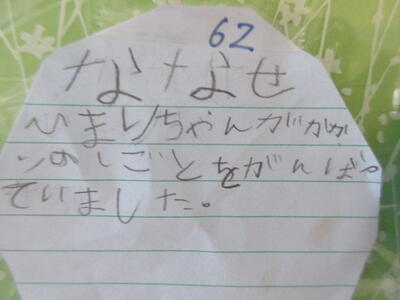 62
ななせ
ひまりちゃんがかか
りのしごとをがんばっ
ていました。